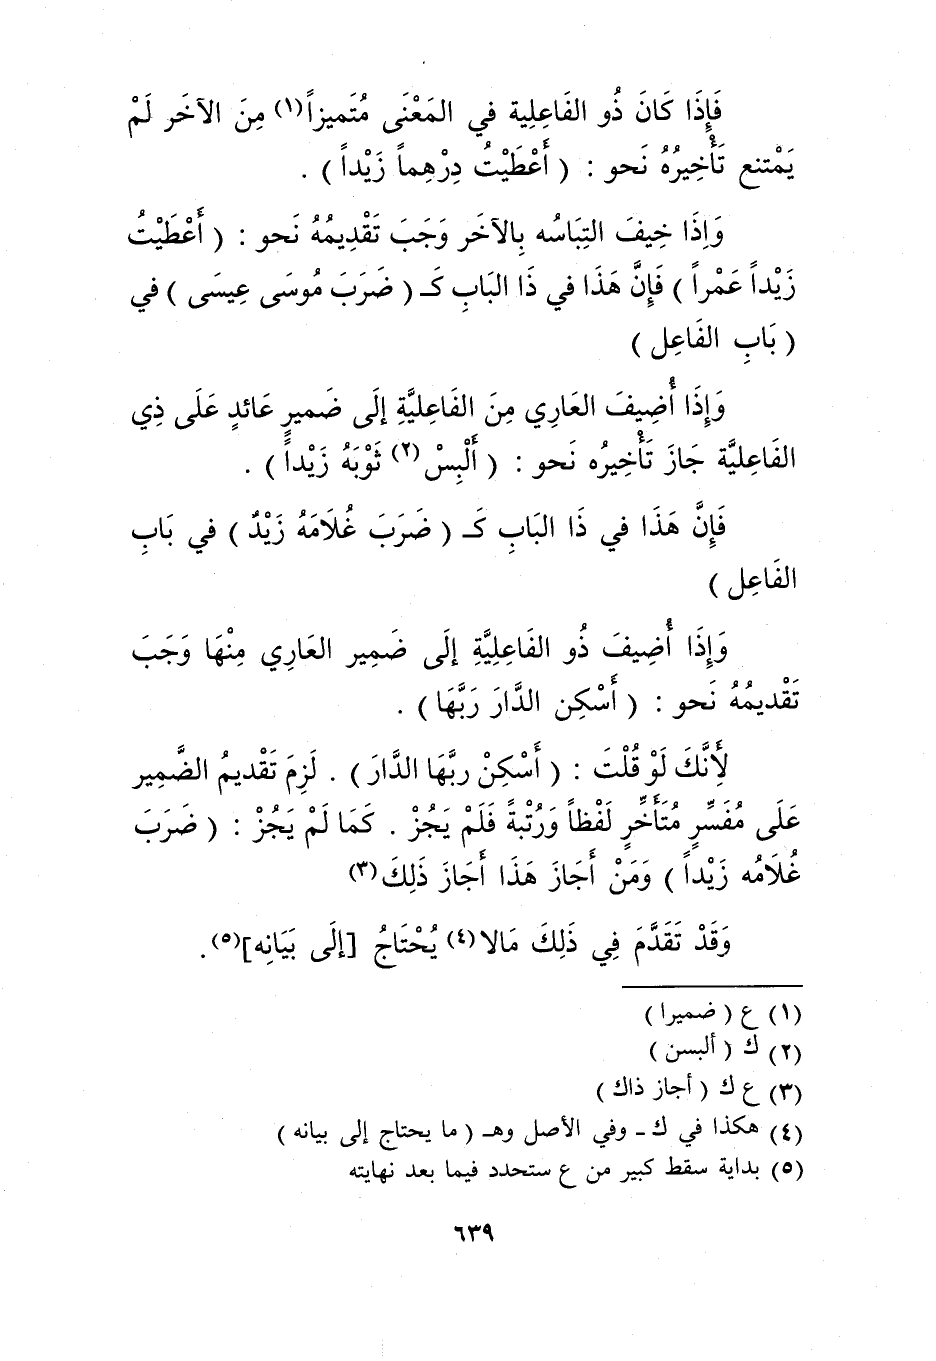 فَإِذَا كَانَ ذُو الفَاعِلِية في المَعْنَى مُتَميزاً(١) مِنَ الآخَر لَمْ
يَمْتنع تَأْخِيرُهُ نَحو : ( أَعْطَيْتُ دِرْهِماً زَيْداً ) .
وَإِذَا خِيفَ التِبَاسُه بِالآخَر وَجَبَ تَقْدِيمُهُ نَحو : ( أَعْطَيْتُ
زَيْداً عَمْراً ) فَإِنَّ هَذَا في ذَا البَابِ كَـ ( ضَرَبَ مُوسَى عِيسَى ) في
( بَابِ الفَاعِل )
وَإِذَا أُضِيفَ العَارِي مِنَ الفَاعِليَّةِ إلَى ضَميرٍ عَائدٍ عَلَى ذِي
الفَاعِليَّة جَازَ تَأْخِيرُه نَحو : ( أَلْبِسْ(٢) ثَوْبَهُ زَيْداً ) .
فَإِنَّ هَذَا في ذَا البَابِ كَـ ( ضَرَبَ غُلَامَهُ زَيْدٌ ) في بَابِ
الفَاعِل )
وَإِذَا أُضِيفَ ذُو الفَاعِليَّةِ إلَى ضَمِير العَارِي مِنْهَا وَجَبَ
تَقْديمُهُ نَحو : ( أَسْكِن الدَّارَ رَبَّهَا ) .
لأَِنَّكَ لَوْ قُلْتَ : ( أَسْكِنْ ربَّهَا الدَّارَ ) . لَزِمَ تَقْديمُ الضَّمِير
عَلَى مُفَسِّرٍ مُتَأَخِّرٍ لَفْظاً وَرُتْبةً فَلَمْ يَجُزْ . كَمَا لَمْ يَجُزْ : ( ضَرَبَ
غُلَامُه زَيْداً ) وَمَنْ أَجَازَ هَذَا أَجَازَ ذَلِكَ(٣)
وَقَدْ تَقَدَّمَ فِي ذَلِكَ مَالا(٤) يُحْتَاجُ [إلَى بَيَانِه](٥).
(١) ع ( ضميرا )
(٢) ك ( ألبسن )
(٣) ع ك ( أجاز ذاك )
(٤) هكذا في ك ـ وفي الأصل وهـ ( ما يحتاج إلى بيانه )
(٥) بداية سقط كبير من ع ستحدد فيما بعد نهايته
٦٣٩